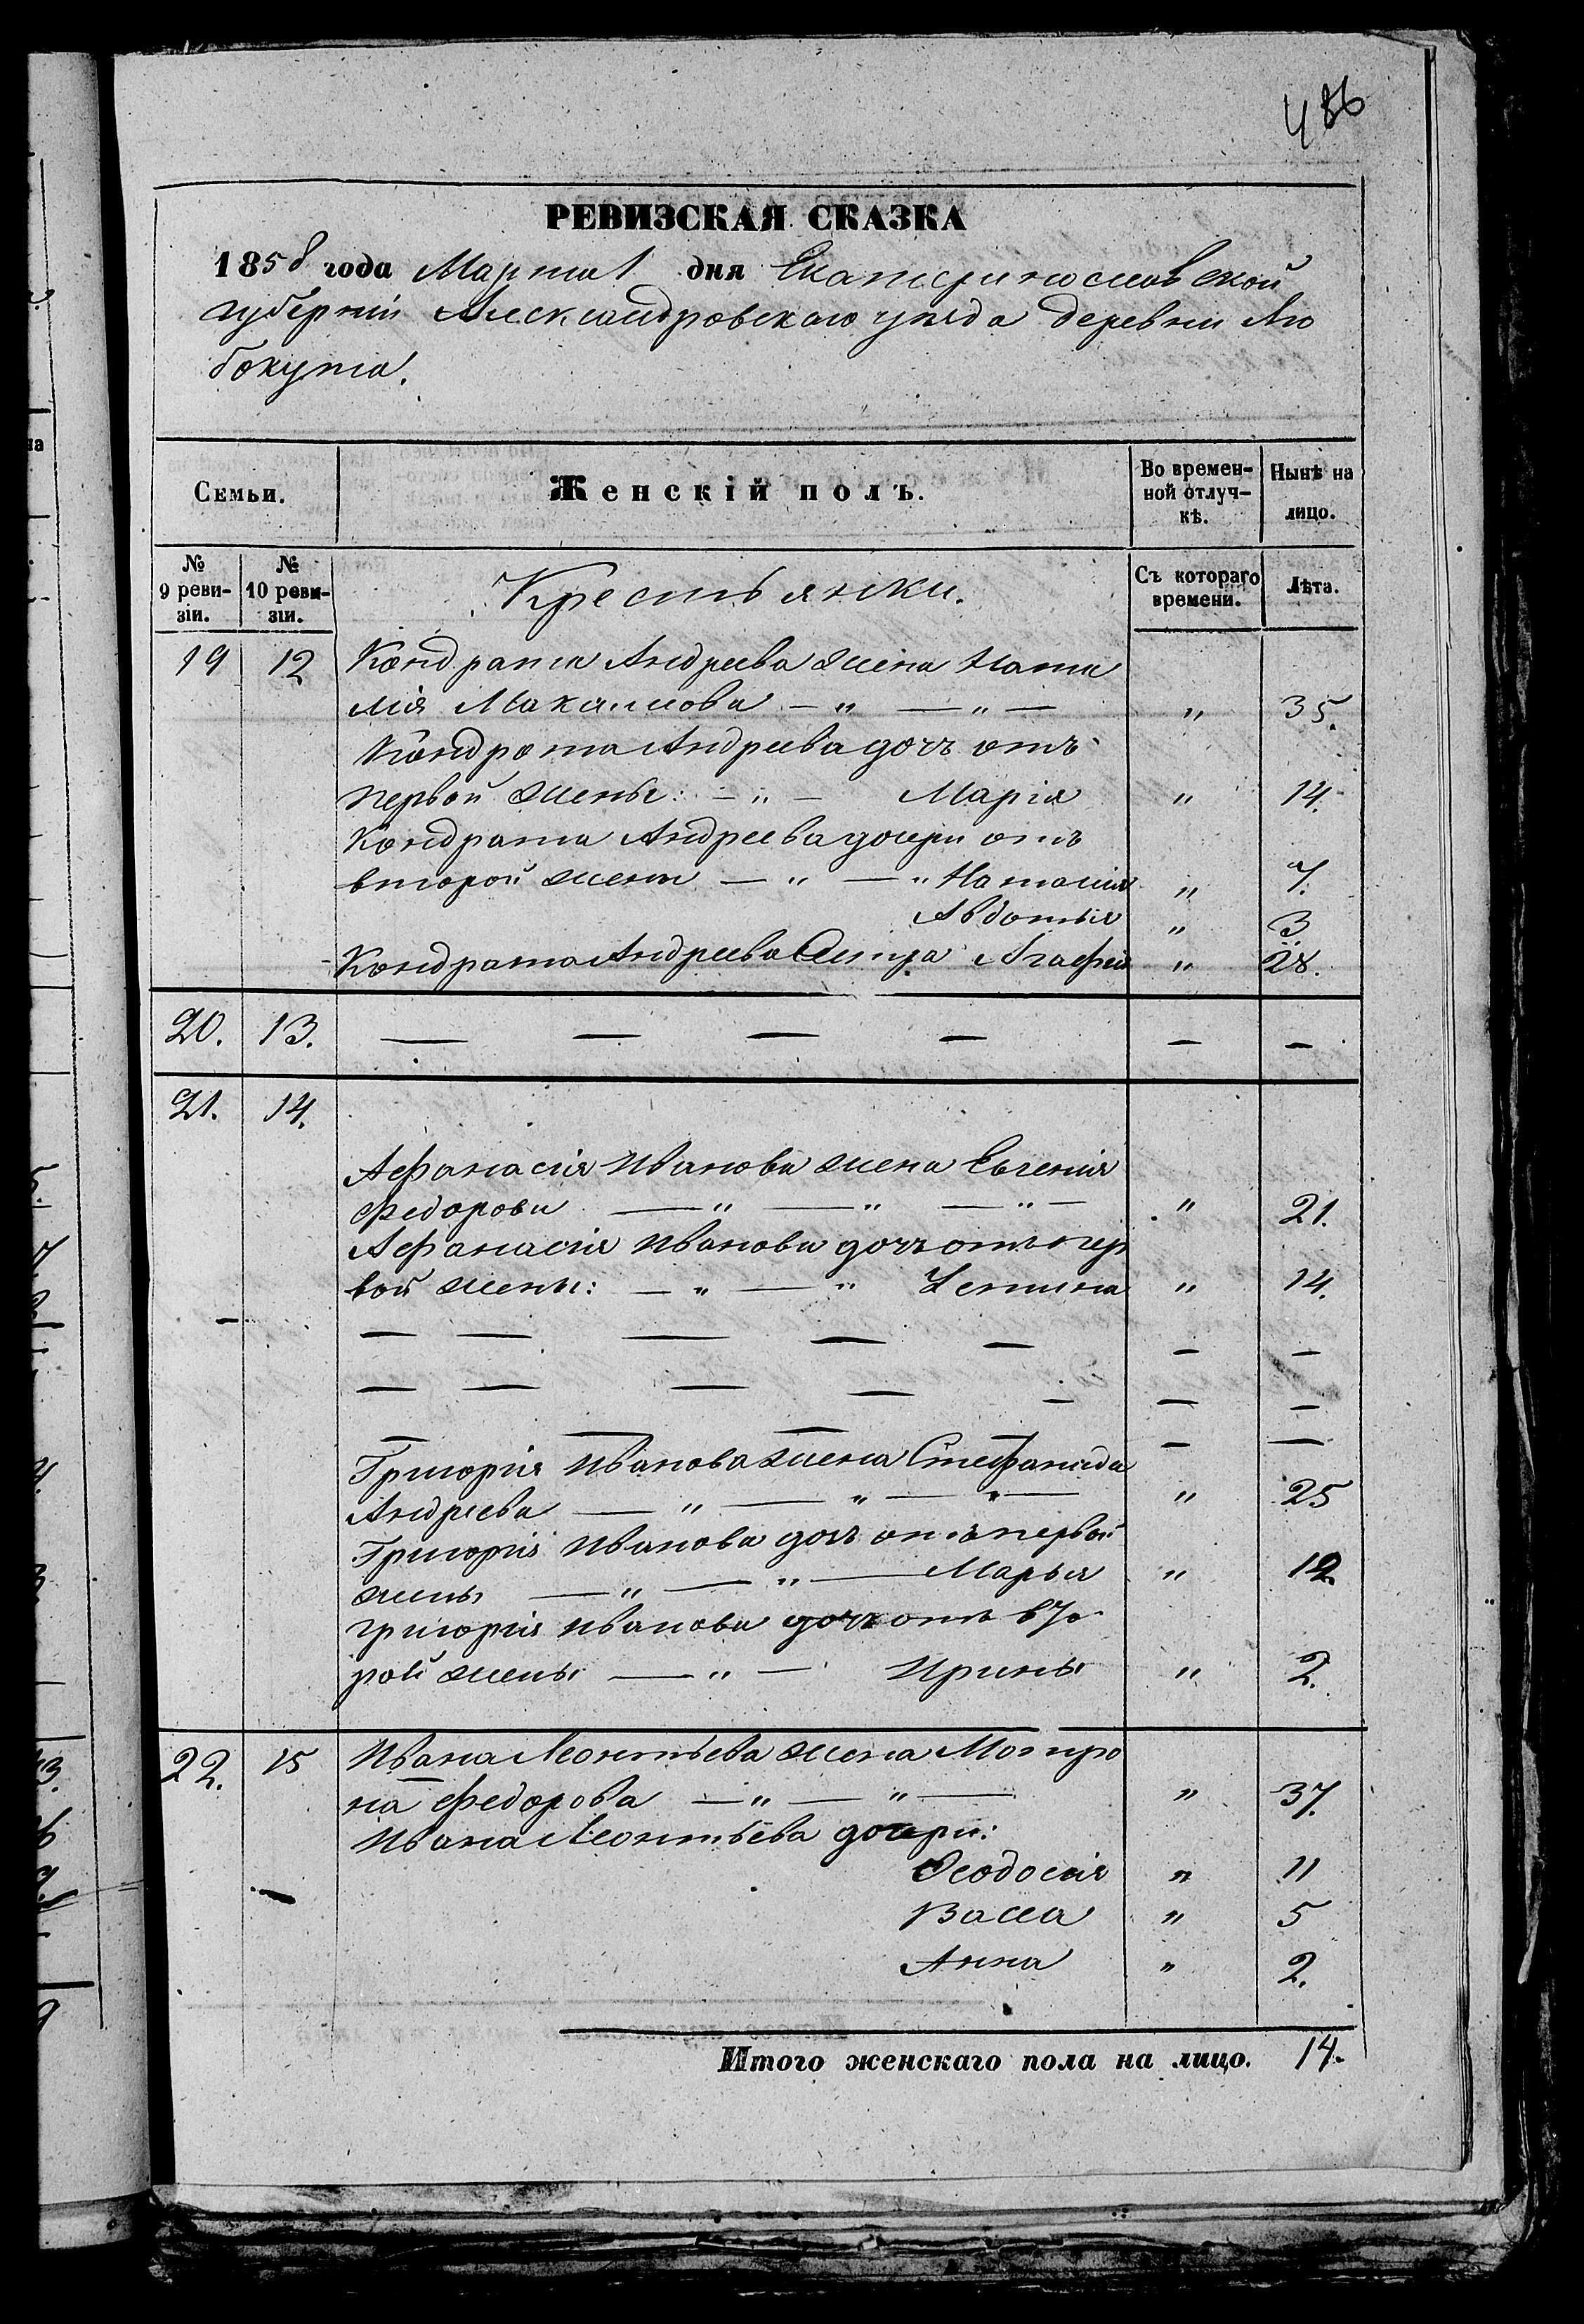 486
РЕВИЗСКАЯ СКАЗКА
1858 года Марта 1 дня Екатеринославской
губерніи Александровскаго уѣзда деревни Лю
бокута.
Семьи.
Женскій полъ.
Во времен-
ной отлуч-
кѣ.
Нынѣ на
лицо.
№
9 реви-
зіи.
№
10 реви-
зіи.
Крестьянки.
Съ котораго
времени.
Лѣта.
19 12 Кондрата Андреева жена Ната
лія Максимова — " — " — " 35.
Кондрата Андреева дочь отъ
первой жены: — " — Марія " 14.
Кондрата Андреева дочери отъ
второй жены — " — " Наталія " 7.
Авдотья " 3
Кондрата Андреева Сестра Агафія " 28.
20. 13. — — — — — —
21. 14.
Афанасія Иванова жена Евгенія
Федорова — " — " — " — " 21.
Афанасія Иванова дочь отъ пер
вой жены: — " — " " 14.
— — — — — — —
— — — — — — —
— — — — — —
Григорія Иванова жена Стефанида
Андреева — " — " — " — " 25
Григорія Иванова дочь отъ первой
жены — " — " — Марья " 12.
Григорія Иванова дочь отъ вто
рой жены — " — Ирины " 2.
22. 15 Ивана Леонтьева жена Мотро
на Федорова — " — " — " 37.
Ивана Леонтьева дочери:
Феодосія " 11
Васса " 5
Анна " 2.
Итого женскаго пола на лицо. 14.